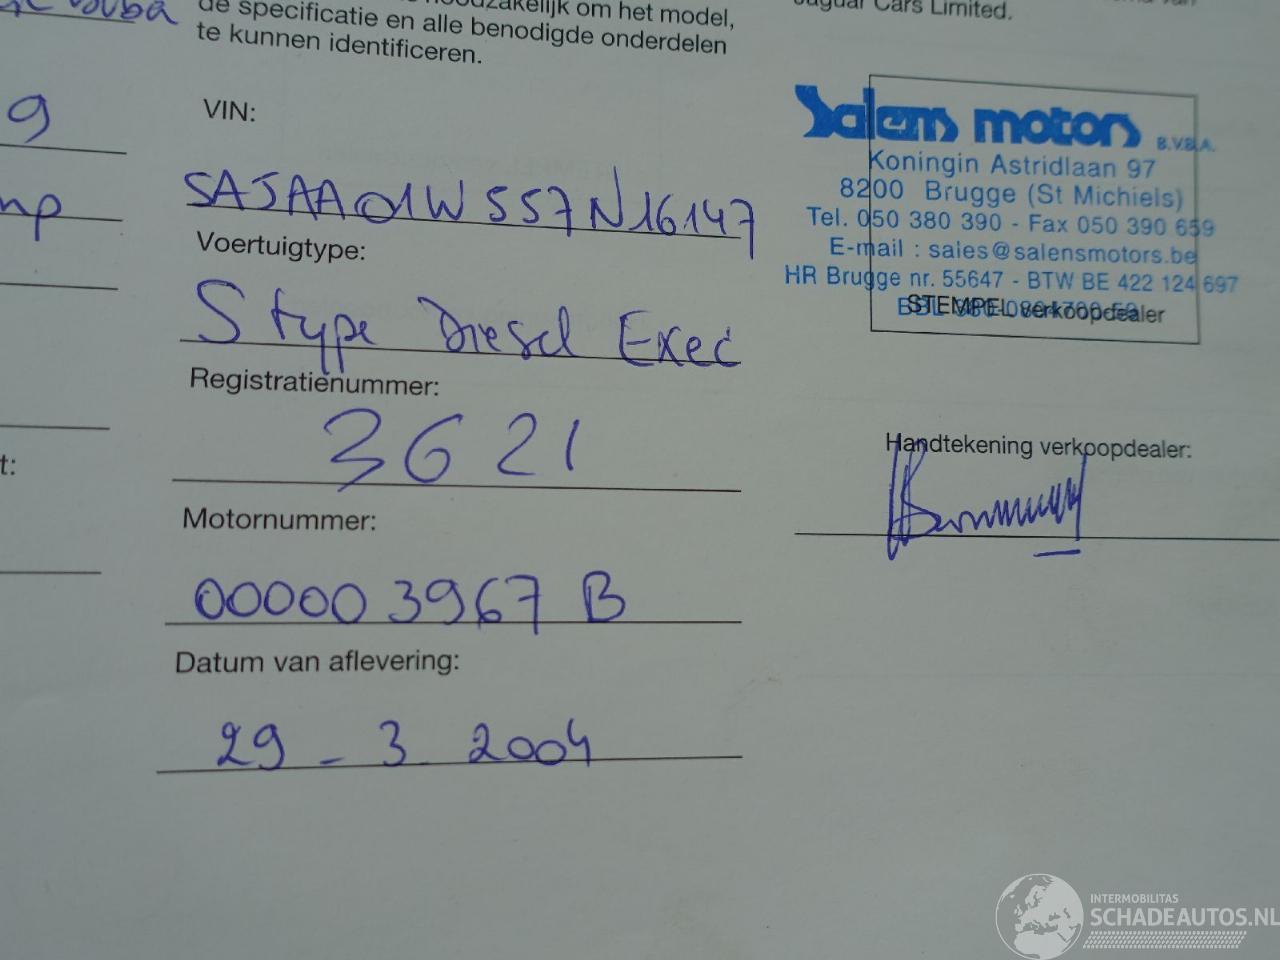 om het model,
de specificatie en alle benodigde onderdelen
te kunnen identificeren.
Jaguar Cars Limited.
9
VIN:
SAJAA01W557N16147
Voertuigtype:
S type Diesel Exec
Registratienummer:
3621
t:
Motornummer:
000003967 B
Datum van aflevering:
29 - 3 2004
Salens motors B.V.B.A.
Koningin Astridlaan 97
8200 Brugge (St Michiels)
Tel. 050 380 390 - Fax 050 390 659
E-mail : sales@salensmotors.be
HR Brugge nr. 55647 - BTW BE 422 124 697
STEMPEL verkoopdealer
Handtekening verkoopdealer:
INTERMOBILITAS
SCHADEAUTOS.NL